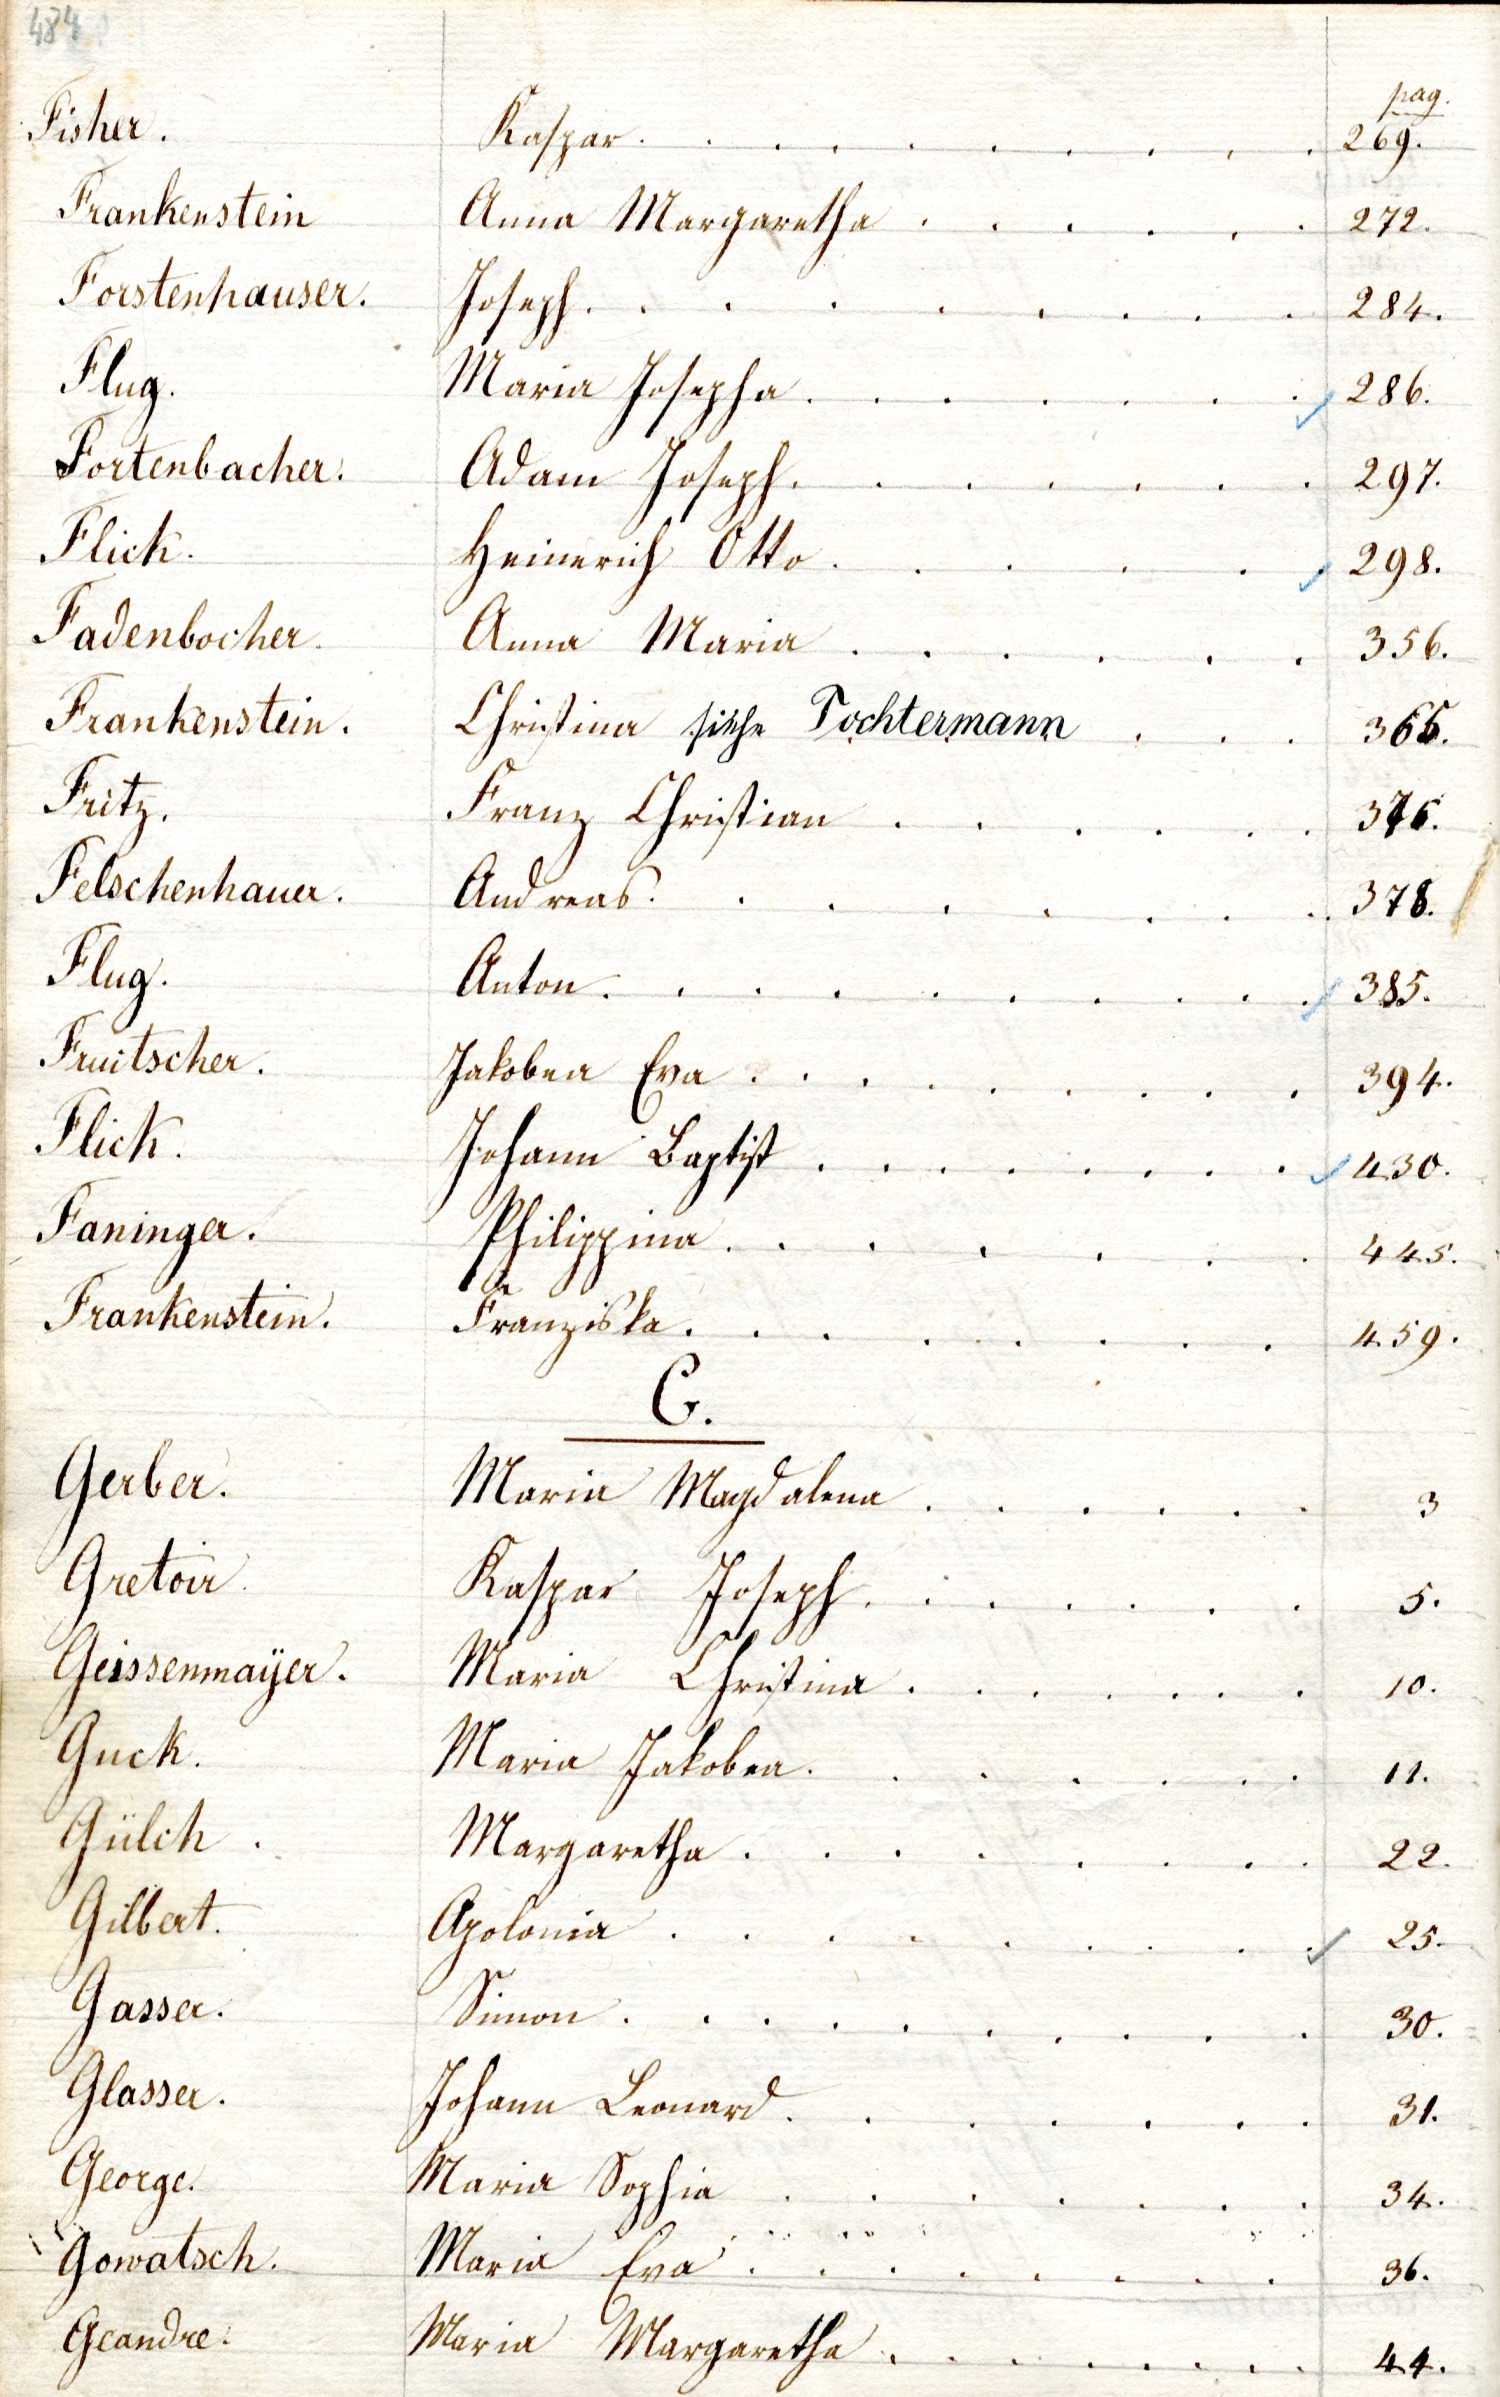 484
pag.
Fisher. Kaspar. 269.
Frankenstein Anna Margaretha 272.
Forstenhauser. Joseph. 284.
Flug. Maria Josepha. 286.
Fortenbacher. Adam Joseph. 297.
Flick. Heinerich Otto. 298.
Fadenbocher. Anna Maria 356.
Frankenstein. Christina siehe Tochtermann
Fritz. Franz Christian 376.
Felschenhauer. Andreas. 378.
Flug. Anton. 385.
Fruitscher. Jakobea Eva 394.
Flick. Johann Baptist 430.
Faninger. Philippina. 445.
Frankenstein. Franziska. 459.
G.
Gerber. Maria Magdalena 3
Gretoir. Kaspar Joseph. 5.
Geissenmaÿer. Maria Christina 10.
Guck. Maria Jakobea. 11.
Gülch. Margaretha 22.
Gilbert. Apolonia 25.
Gasser. Simon. 30.
Glasser. Johann Leonard. 31.
George. Maria Sophia 34.
Gowatsch. Maria Eva 36.
Geandre. Maria Margaretha 44.